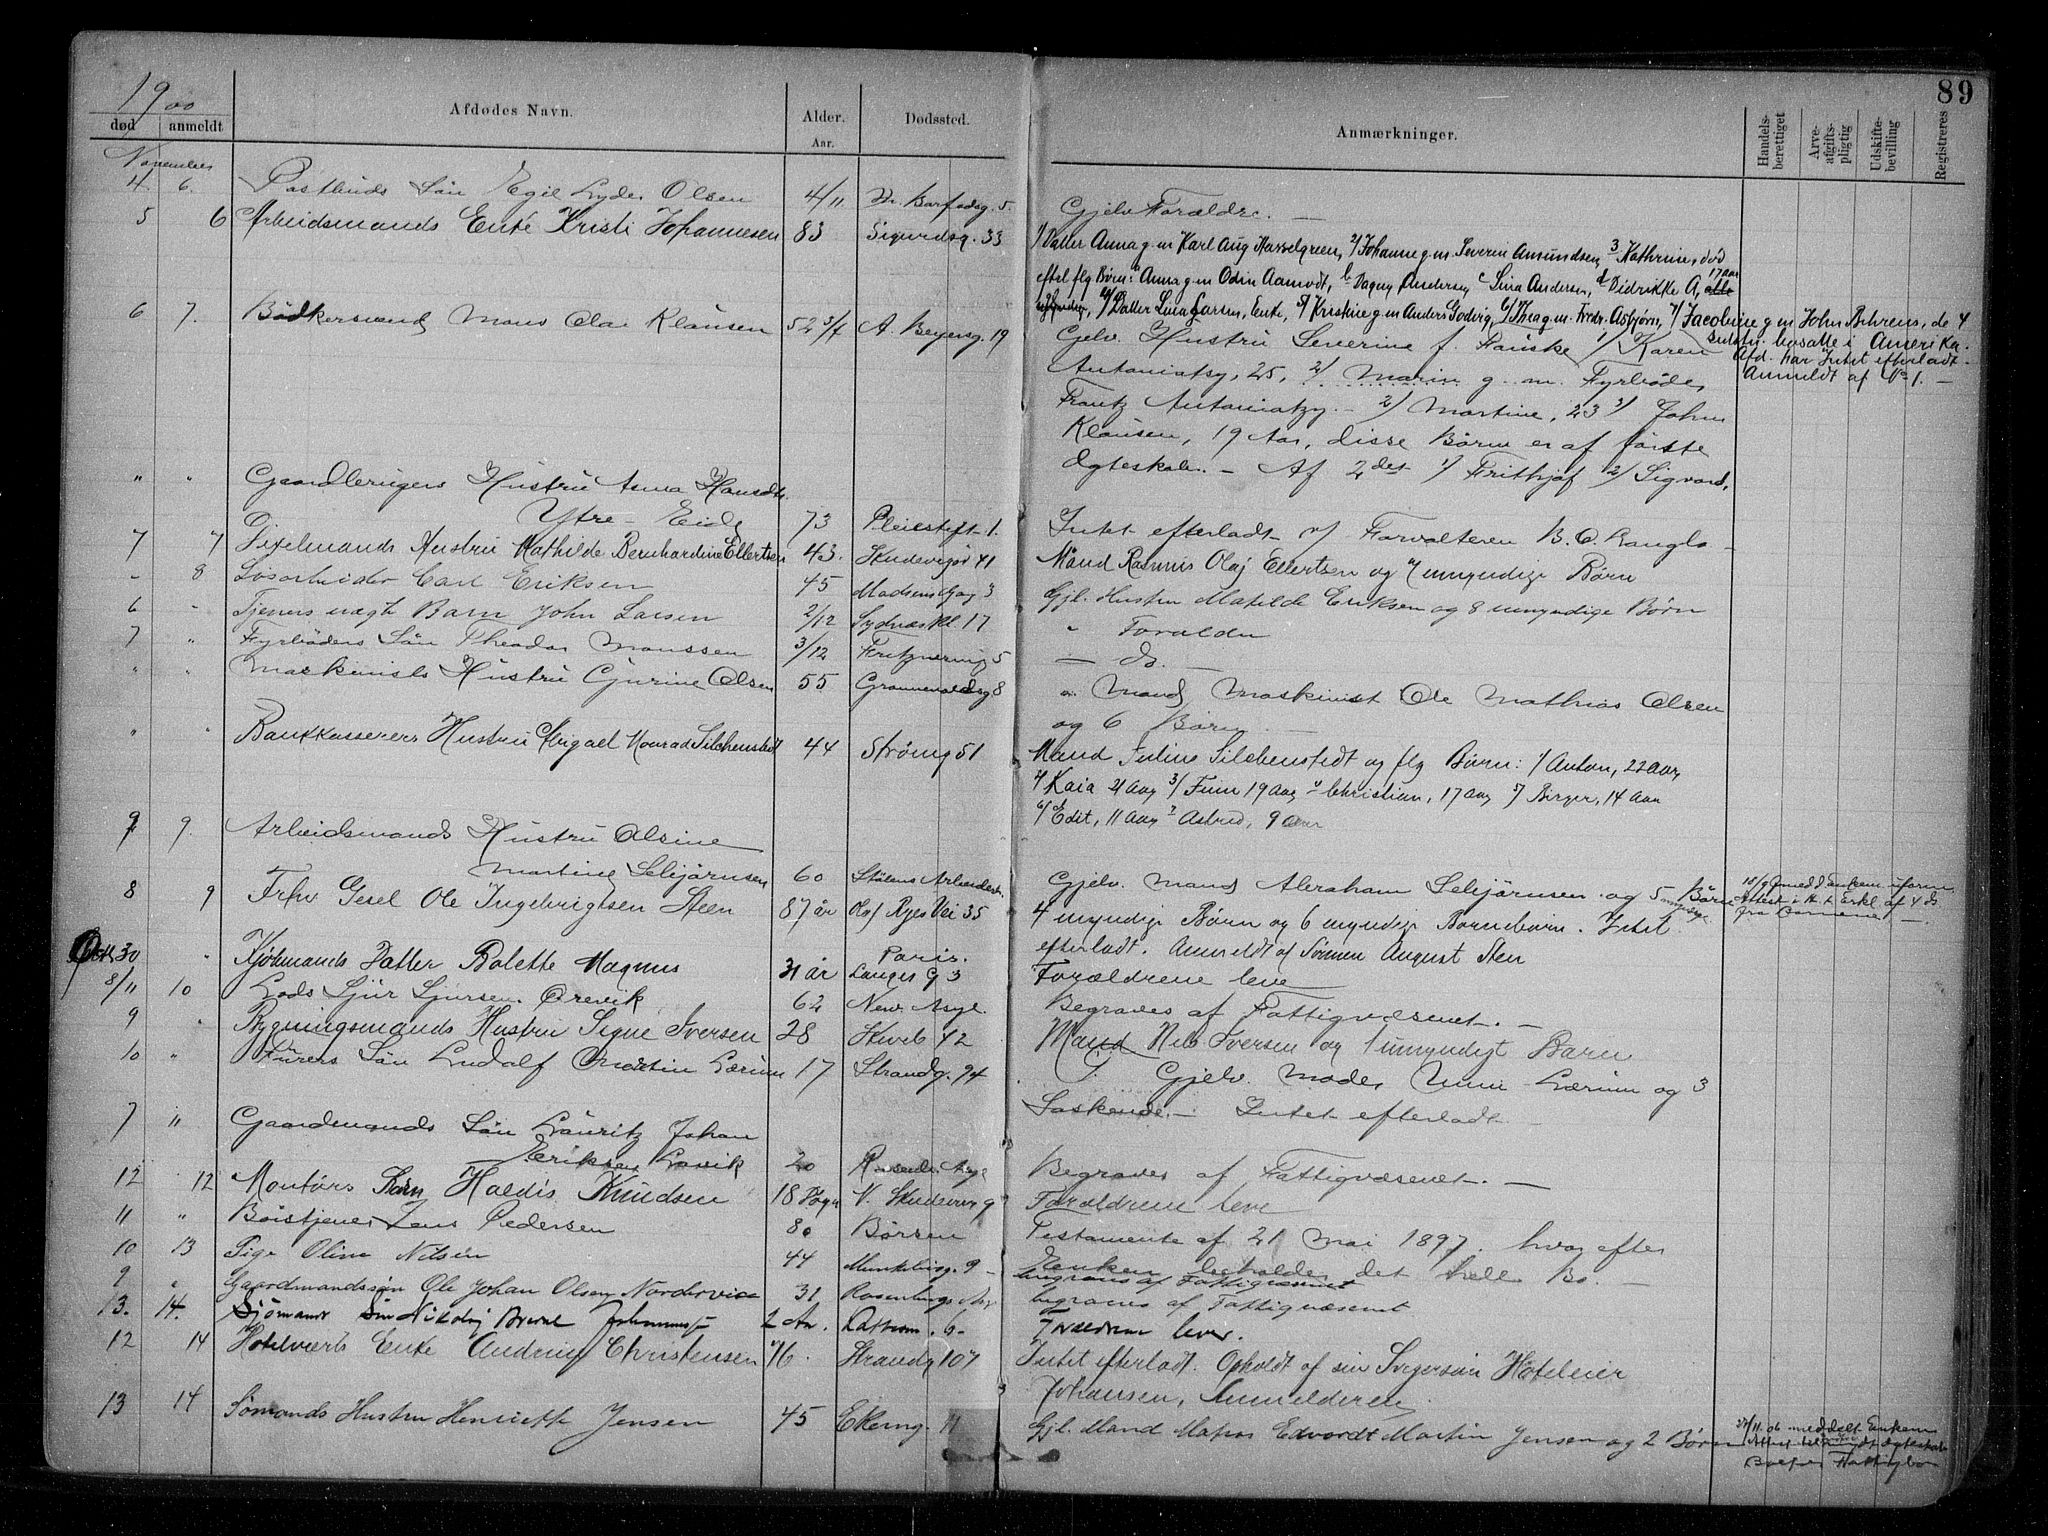 89
1900
død anmeldt Afdødes Navn. Alder. Aar. Dødssted. Anmærkninger. Handelsberettiget Arveafgiftspligtig Udskiftebevilling Registreres
November
4. 6. Postbuds Sön Egil Lyder Olsen 4/11 5. Gjelv Forældre. —
5 6 Arbeidsmands Enke Kristi Johannesen 83 Sigurdsg. 33 1/ Datter Anna g.m Karl Aug Hasselgreen, 2/ Johanne g.m. Severin Amundsen, 3 Kathrine, død
efterl flg Børn: a Anna g.m Odin Aamodt, b Dagny Andersen c Lina Andersen, d Didrikke A, 17 aar
4/ Datter Lina Larsen, Enke, 5/ Kristine g.m Anders Godvig, 6/ Thea g.m. Fredr. Asbjørn, 7/ Jacobine g m John Behrens, de 4
sidstn. bosatte i Amerika.
Afd. har Intet efterladt.
Anmeldt af No 1. —
6 7. Bødkersvend Mons Olai Klausen 52 A. Beyersg. 19 Gjelv. Hustru Severine f. Fauske 1/ Karen
Antoniatzy, 25, 2/ Marie g. m. Fyrbøder
Frantz Antoniatzy. — 2/ Martine, 23 3/ John
Klausen, 19 Aar, disse Børn er af første
Ægteskab. — Af 2det 1/ Frithjof 2/ Sigvard,
" " Gaardbrugers Hustru Anna Hansdtr.
Ytre-Eide 73 Pleiestift. 1. Intet efterladt v/ Forvalteren B. O. Langlo
7 7 Pixelmands Hustru Mathilde Bernhardine Ellertsen 43. Skudevigsv 41 Mand Rasmus Olaj Ellertsen og 7 umyndige Børn
- 8 Løsarbeider Carl Eriksen 45 Madsens Gag 3 Gjl. Hustru Matilde Eriksen og 8 umyndige Børn
6 - Tjeners uægte Barn John Larsen 2/12 Sydnæskl 17 " Forældre
7 " Fyrbøders Sön Theodor Monssen 3/12 Fritznersmg 5 — do. —
" " Maskinists Hustru Gjurine Olsen 55 8 Mand, Maskinist Ole Mathias Olsen
og 6 Børn. —
" " Bankkasserers Hustru Abigael Konrad Silchenstedt 44 Strömg 51 Mand Julius Silchenstedt og flg Børn: 1/ Anton, 22 Aar,
2/ Kaia 21 Aar, 3/ Finn 19 Aar, 4 Christian, 17 Aar, 5/ Birger, 14 Aar
6/ Edit, 11 Aar, 7 Astrid, 9 Aar
9 9. Arbeidsmands Hustru Alsine
Martine Sebjørnsen 60 Stølens Gjelv. Mand Abraham Sebjørnsen og 5 Børn
8 9 Frhv Gesel Ole Ingebrigtsen Steen 87 år Olaf Ryes Vei 35 4 myndige Børn og 6 myndige Børnebørn. Intet
efterladt. Anmeldt af Sønnen August Sten
Okt. 30 " Kjøbmands Datter Bolette Magnus 31 år Paris. Langes G 3 Forældrene leve
8/11 10 Lods Sjur Sjursen Ørevik 62 New. Asyl. Begraves af Fattigvæsenet. —
9 " Rygningsmands Hustru Signe Iversen 28 Skiveb 42 Mand Nils Iversen og 1 umyndigt Barn
10 " Furers Sön Ludolf Martin Lærum 17 Strandg. 94 Gjelv. Moder Lærum og 3
Søskende. — Intet efterladt
7 " Gaardmands Sön Lauritz Johan
Eriksen Lavik 20 Begraves af Fattigvæsenet. —
12 12 Montørs Barn Haldis Knudsen 18 Dage V. 9 Forældrene leve
11 " Börstjener Jens Pedersen 80 Börsen Testamente af 21 Mai 1897. hvorefter
Enken beholder det hele Bo. —
10 13 Pige Olina Nilsen 44 Munkebg. 9 — begraves af Fattigvæsenet
9 " Gaardmandssön Ole Johan Olsen Nordervik 31 Rosenbergs Asyl begraves af Fattigvæsenet
13. 14. Sjömands Sön Nikolai 2 Aar. 6. Forældrene lever.
12 14 Hotelværts Enke Andrine Christensen 76. Strandg 107 Intet efterladt. Opholdt af sin Svigersøn Hoteleier
Johansen, Anmelderen
13 14 Sömands Hustru Henriette Jensen 45 Ekerng. 11 Gjl. Mand Matros Edvardt Martin Jensen og 2 Børn